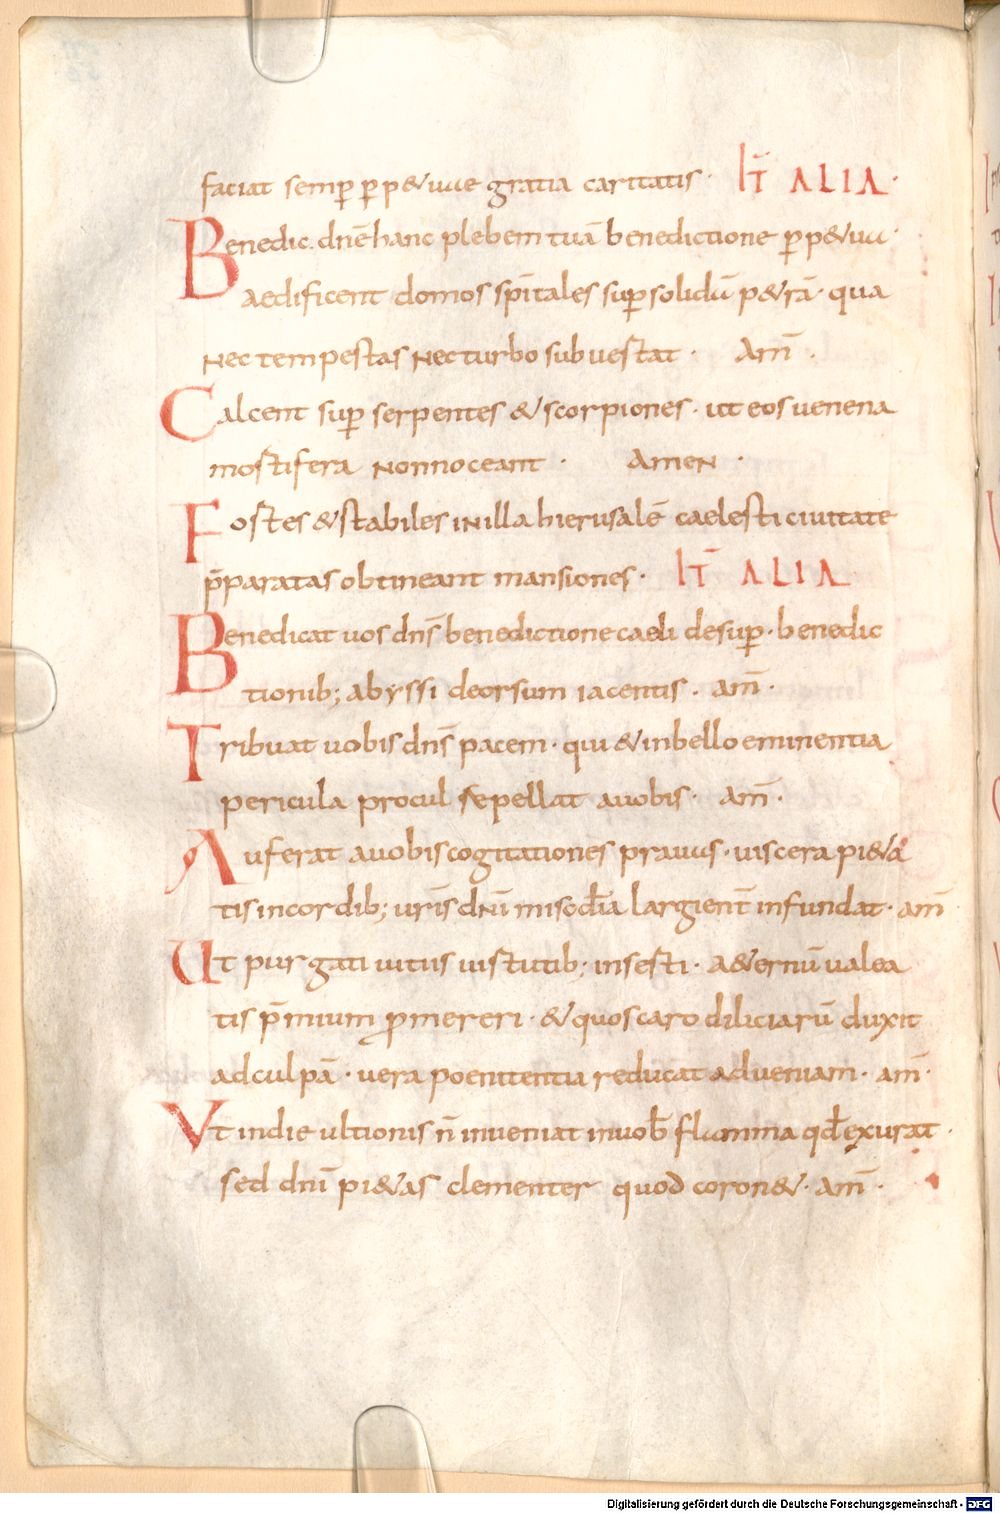 faciat semp̄ p̄p&uae gratia caritatis · IT̄ ALIA ·
Benedic. dn̄e hanc plebem tuā benedictione p̄p&ua ·
aedificent domos sp̄itales sup̄ solidū p&rā · qua
nec tempestas nec turbo subuestat · am̄ ·
Calcent sup̄ serpentes & scorpiones · ut eos uenena
mostifera non noceant · amen ·
Fostes & stabiles in illa hierusalē caelesti ciuitate
p̄paratas obtineant mansiones · IT̄ ALIA
Benedicat uos dn̄s benedictione caeli desup̄ · benedic
tionib; abyssi deorsum iacentis . am̄ ·
Tribuat uobis dn̄s pacem · qui & in bello eminentia
pericula procul sepellat auobis · am̄ ·
Auferat auobis cogitationes prauas · uiscera pi&a
tis in cordib; ur̄is dn̄i misod̄ia largient̄ infundat · am̄
Ut purgati uitiis uistutib; insesti · a&ernū ualea
tis p̄mium p̄mereri · & quos caro diliciarū duxit
ad culpā · uera poenitentia reducat ad ueniam · am̄ ·
Vt in die ultionis n̄ inueniat in uob̄ flamma qd̄ exurat ·
sed dn̄i pi&as clementer quod coron& · am̄ ·
Digitalisierung gefördert durch die Deutsche Forschungsgemeinschaft - DFG